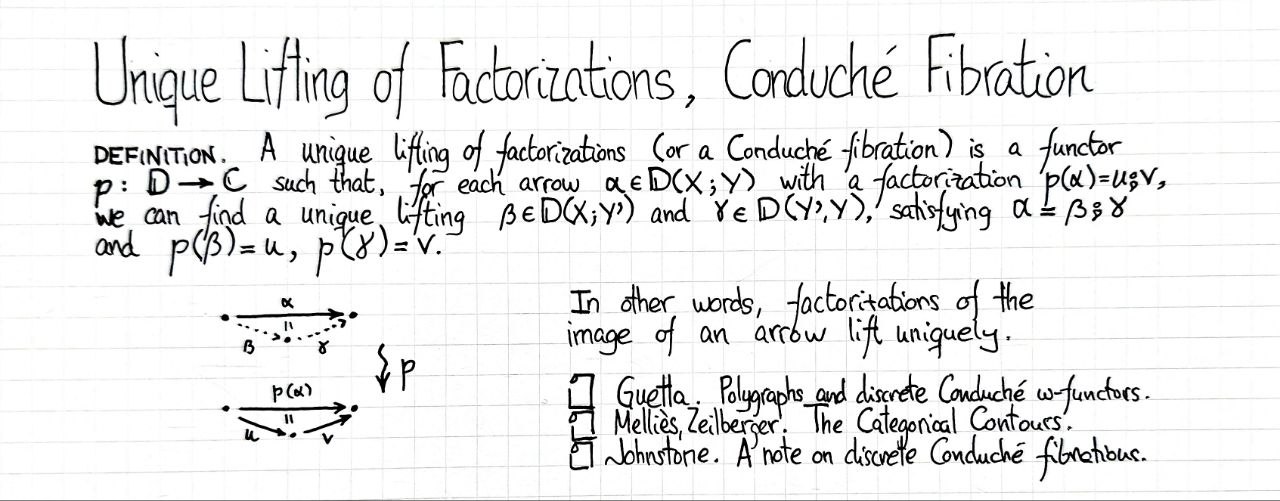 Unique Lifting of Factorizations, Conduché Fibration
DEFINITION. A unique lifting of factorizations (or a Conduché fibration) is a functor
p: 𝔻 → ℂ such that, for each arrow α∈𝔻(X;Y) with a factorization p(α)=u⨟v,
we can find a unique lifting β∈𝔻(X;Y') and γ∈𝔻(Y',Y), satisfying α = β⨟γ
and p(β)=u, p(γ)=v.
α
=
β γ
p
p(α)
=
u v
In other words, factoritations of the
image of an arrow lift uniquely.
Guetta. Polygraphs and discrete Conduché ω-functors.
Melliès, Zeilberger. The Categorical Contours.
Johnstone. A note on discrete Conduché fibrations.